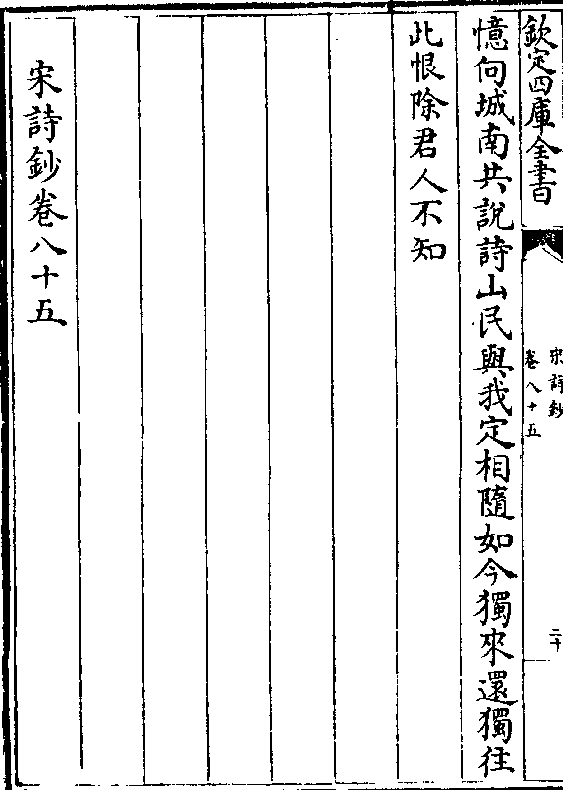 欽定四庫全書
宋詩鈔
卷八十五
二十
憶向城南共說詩山民與我定相隨如今獨來還獨往
此恨除君人不知
宋詩鈔卷八十五